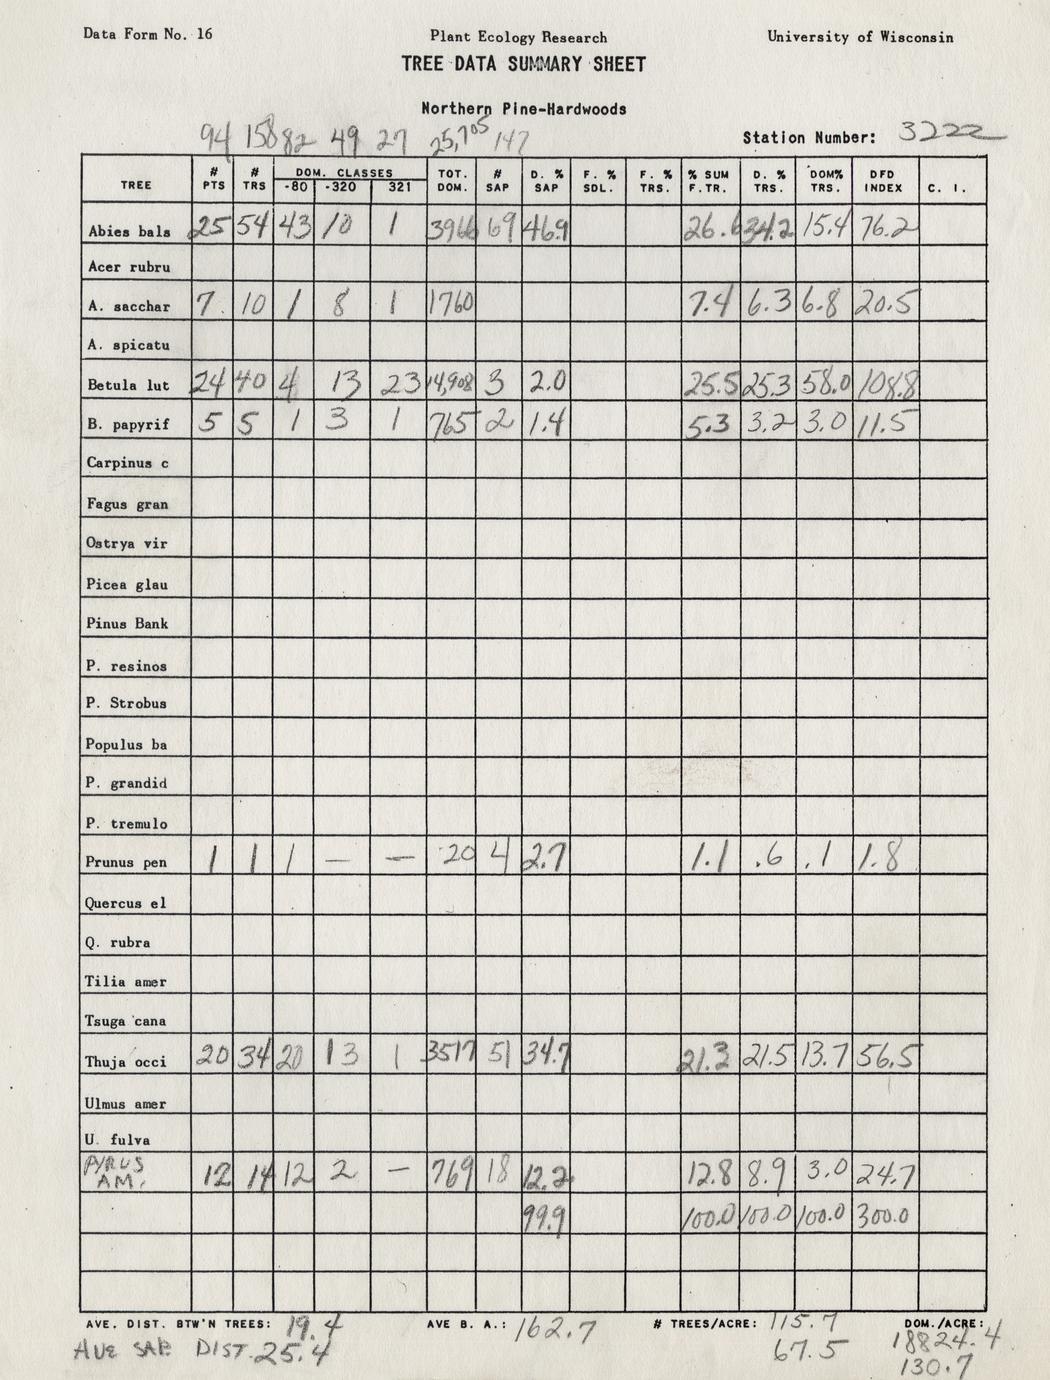 Data Form No. 16
Plant Ecology Research
University of Wisconsin
TREE DATA SUMMARY SHEET
Northern Pine-Hardwoods
94 158 82 49 27 25,705 147
Station Number: 3222
TREE # PTS # TRS DOM. CLASSES -80 -320 321 TOT. DOM. # SAP D. % SAP F. % SDL. F. % TRS. % SUM F.TR. D. % TRS. DOM% TRS. DFD INDEX C. I.
Abies bals 25 54 43 10 1 3966 69 46.9 26.6 34.2 15.4 76.2
Acer rubru
A. sacchar 7 10 1 8 1 1760 7.4 6.3 6.8 20.5
A. spicatu
Betula lut 24 40 4 13 23 14,908 3 2.0 25.5 25.3 58.0 108.8
B. papyrif 5 5 1 3 1 765 2 1.4 5.3 3.2 3.0 11.5
Carpinus c
Fagus gran
Ostrya vir
Picea glau
Pinus Bank
P. resinos
P. Strobus
Populus ba
P. grandid
P. tremulo
Prunus pen 1 1 1 — — 20 4 2.7 1.1 .6 .1 1.8
Quercus el
Q. rubra
Tilia amer
Tsuga cana
Thuja occi 20 34 20 13 1 3517 51 34.7 21.3 21.5 13.7 56.5
Ulmus amer
U. fulva
PYRUS AM. 12 14 12 2 — 769 18 12.2 12.8 8.9 3.0 24.7
99.9 100.0 100.0 100.0 300.0
AVE. DIST. BTW'N TREES: 19.4 AVE B. A.: 162.7 # TREES/ACRE: 115.7 DOM./ACRE: 18824.4
AVE SAP. DIST. 25.4 67.5 130.7